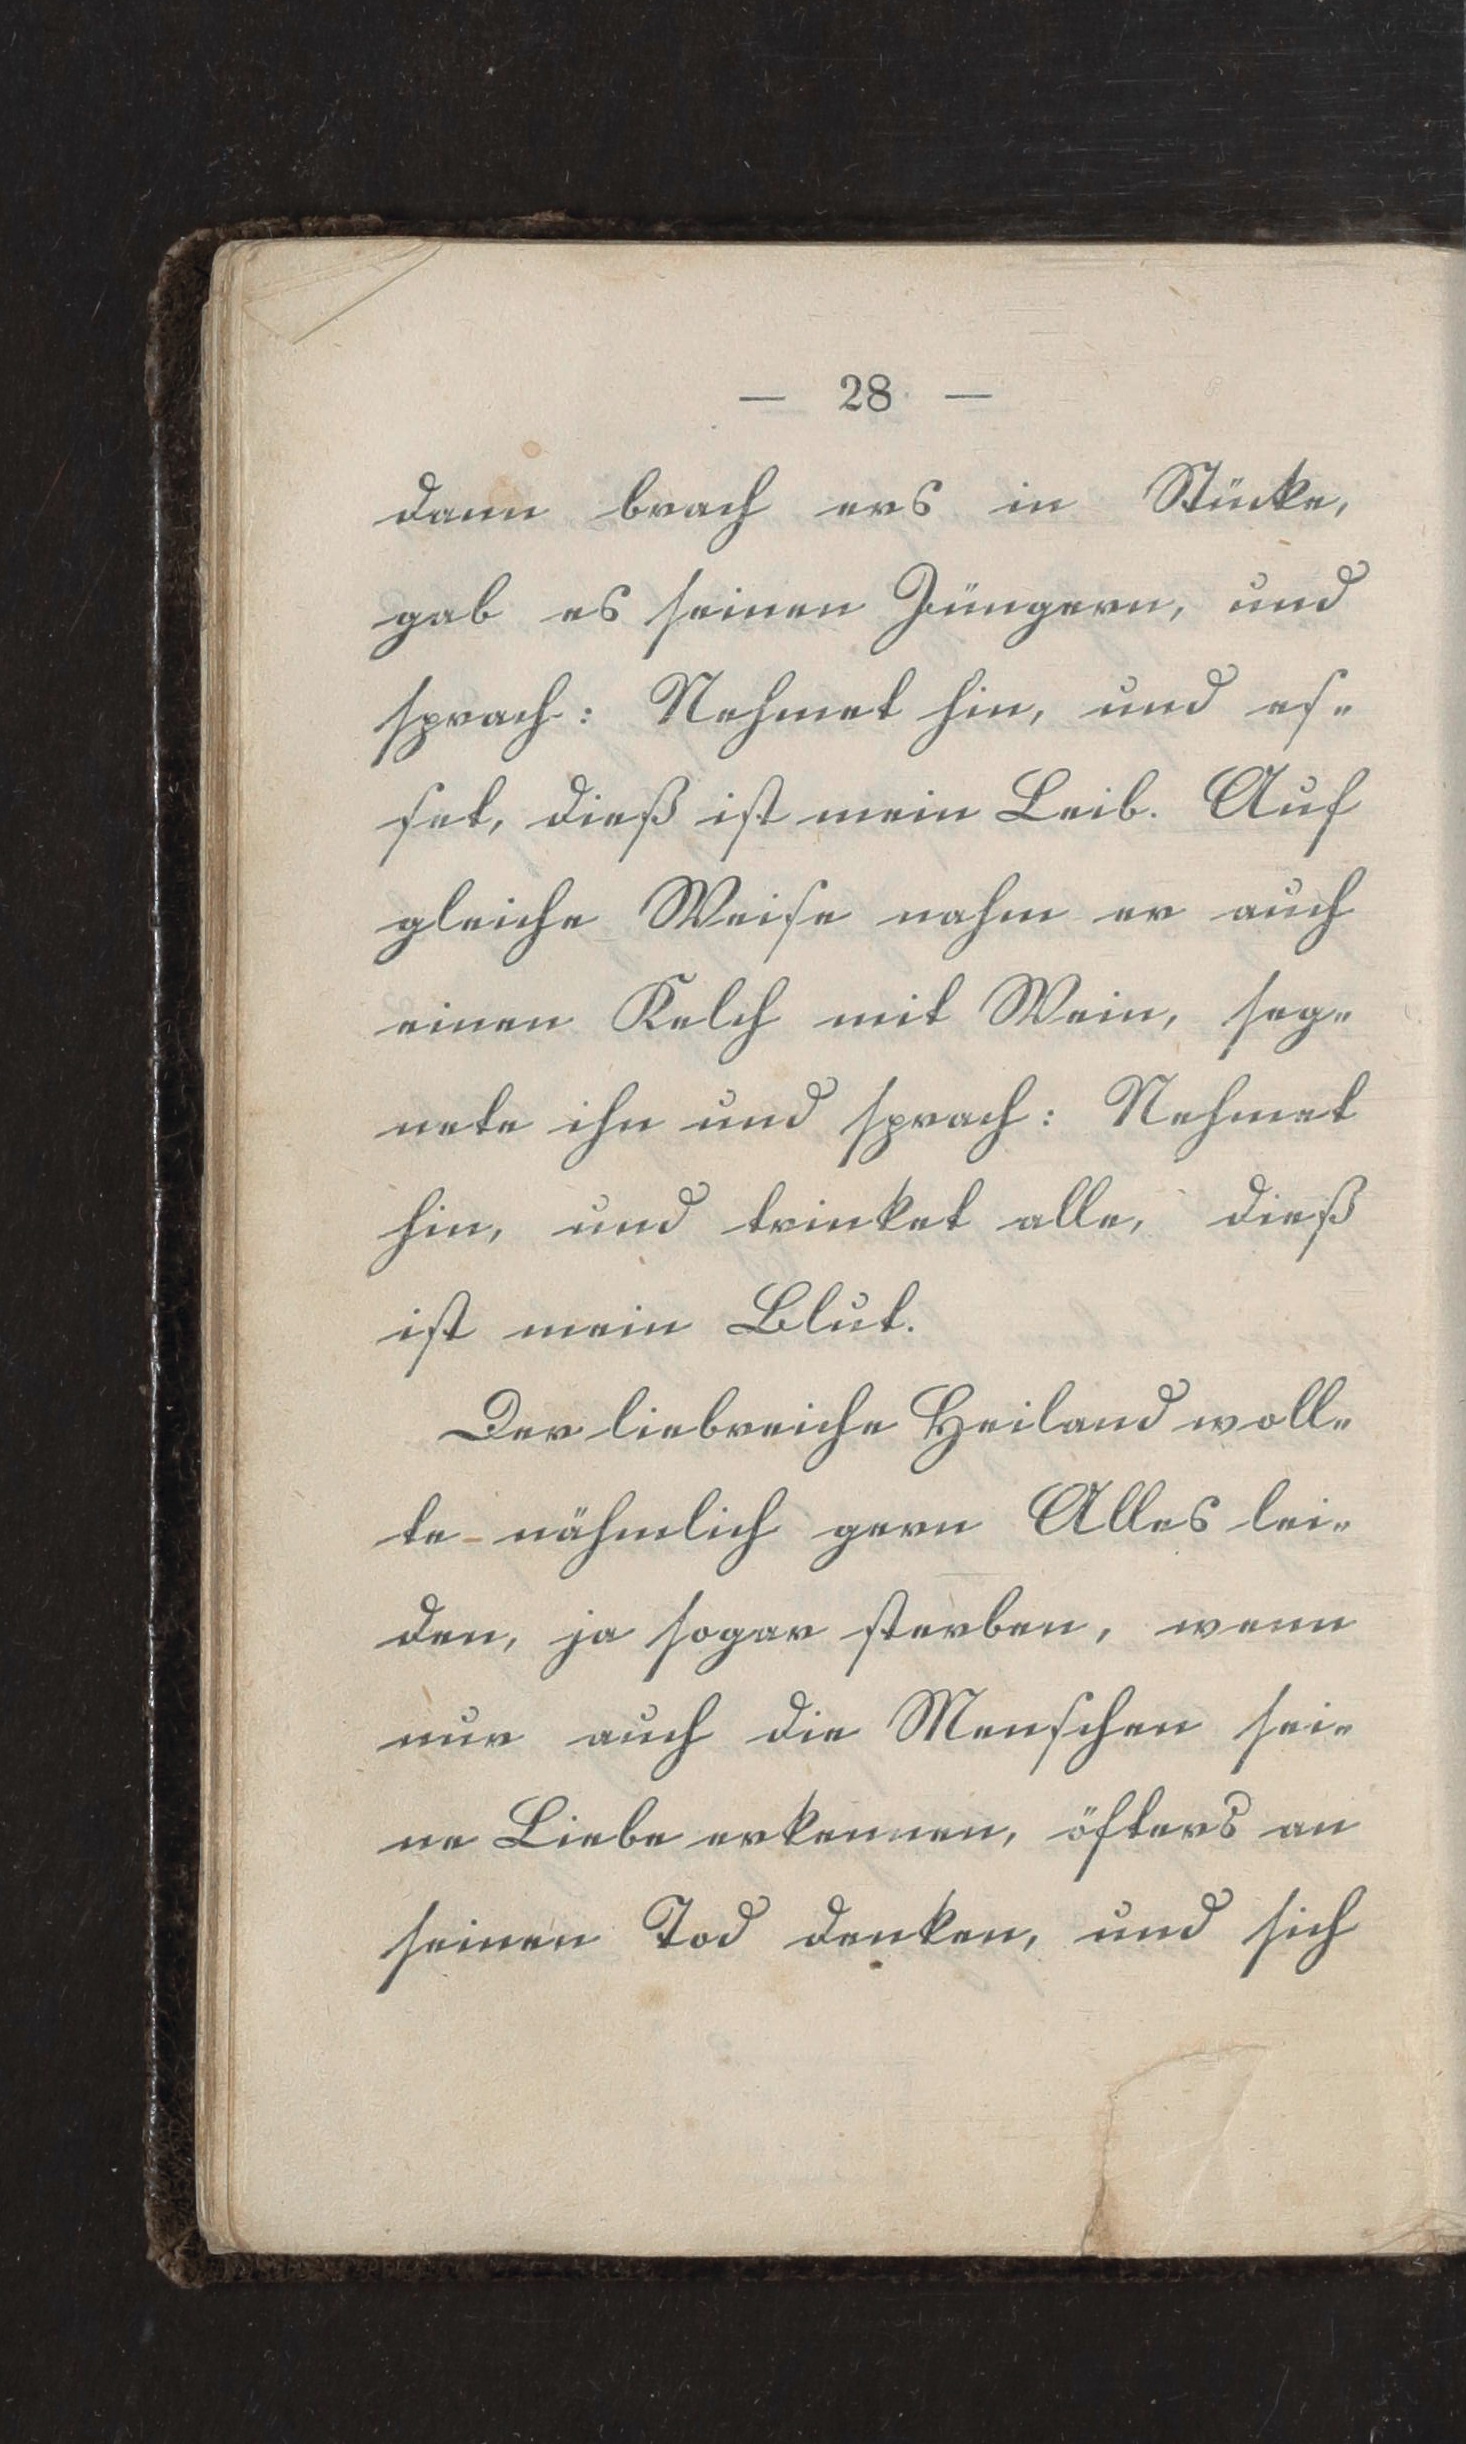 — 28 —
dann brach ers in Stücke,
gab es seinen Jüngern, und
sprach: Nehmet hin, und es-
set, dieß ist mein Leib. Auf
gleiche Weise nahm er auch
einen Kelch mit Wein, seg-
nete ihn und sprach: Nehmet
hin, und trinket alle, dieß
ist mein Blut.
Der liebreiche Heiland woll-
te nähmlich gern Alles lei-
den, ja sogar sterben, wenn
nur auch die Menschen sei-
ne Liebe erkennen, öfters an
seinen Tod denken, und sich